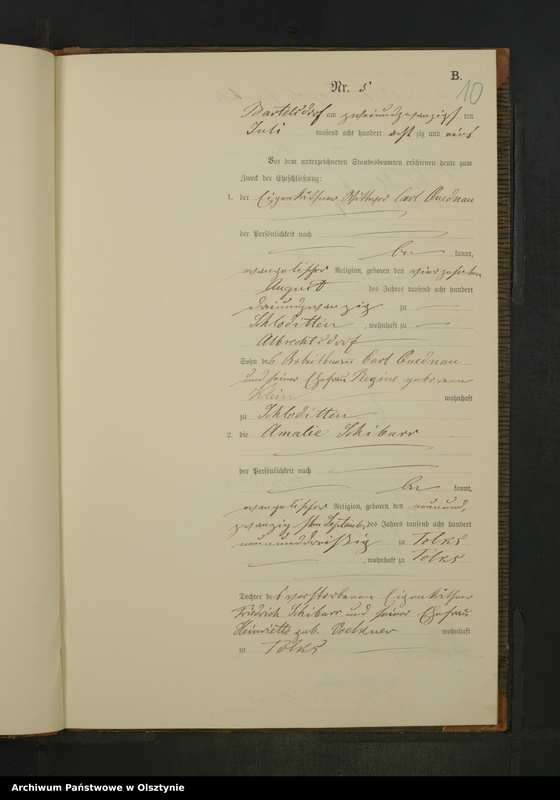 B.
10
Nr. 5
Bartelsdorf am zweiundzwanzigsten
Juli tausend acht hundert acht zig und eins
Vor dem unterzeichneten Standesbeamten erschienen heute zum
Zweck der Eheschließung:
1. der Eigenkäthner Wittwer Carl Quednau
der Persönlichkeit nach
be kannt,
evangelischer Religion, geboren den vierzehnten
August des Jahres tausend acht hundert
dreiundzwanzig zu
Schloditten, wohnhaft zu
Albrechtsdorf
Sohn des Arbeitsmann Carl Quednau
und seiner Ehefrau Regine geborenen
Klein wohnhaft
zu Schloditten
2. die Amalie Schiburr
der Persönlichkeit nach
be kannt,
evangelischer Religion, geboren den neunund
zwanzigsten September des Jahres tausend acht hundert
neununddreißig zu Tolks
, wohnhaft zu Tolks
Tochter des verstorbenen Eigenkäthner
Friedrich Schiburr und seiner Ehefrau
Heinriette geb. wohnhaft
zu Tolks
Archiwum Państwowe w Olsztynie